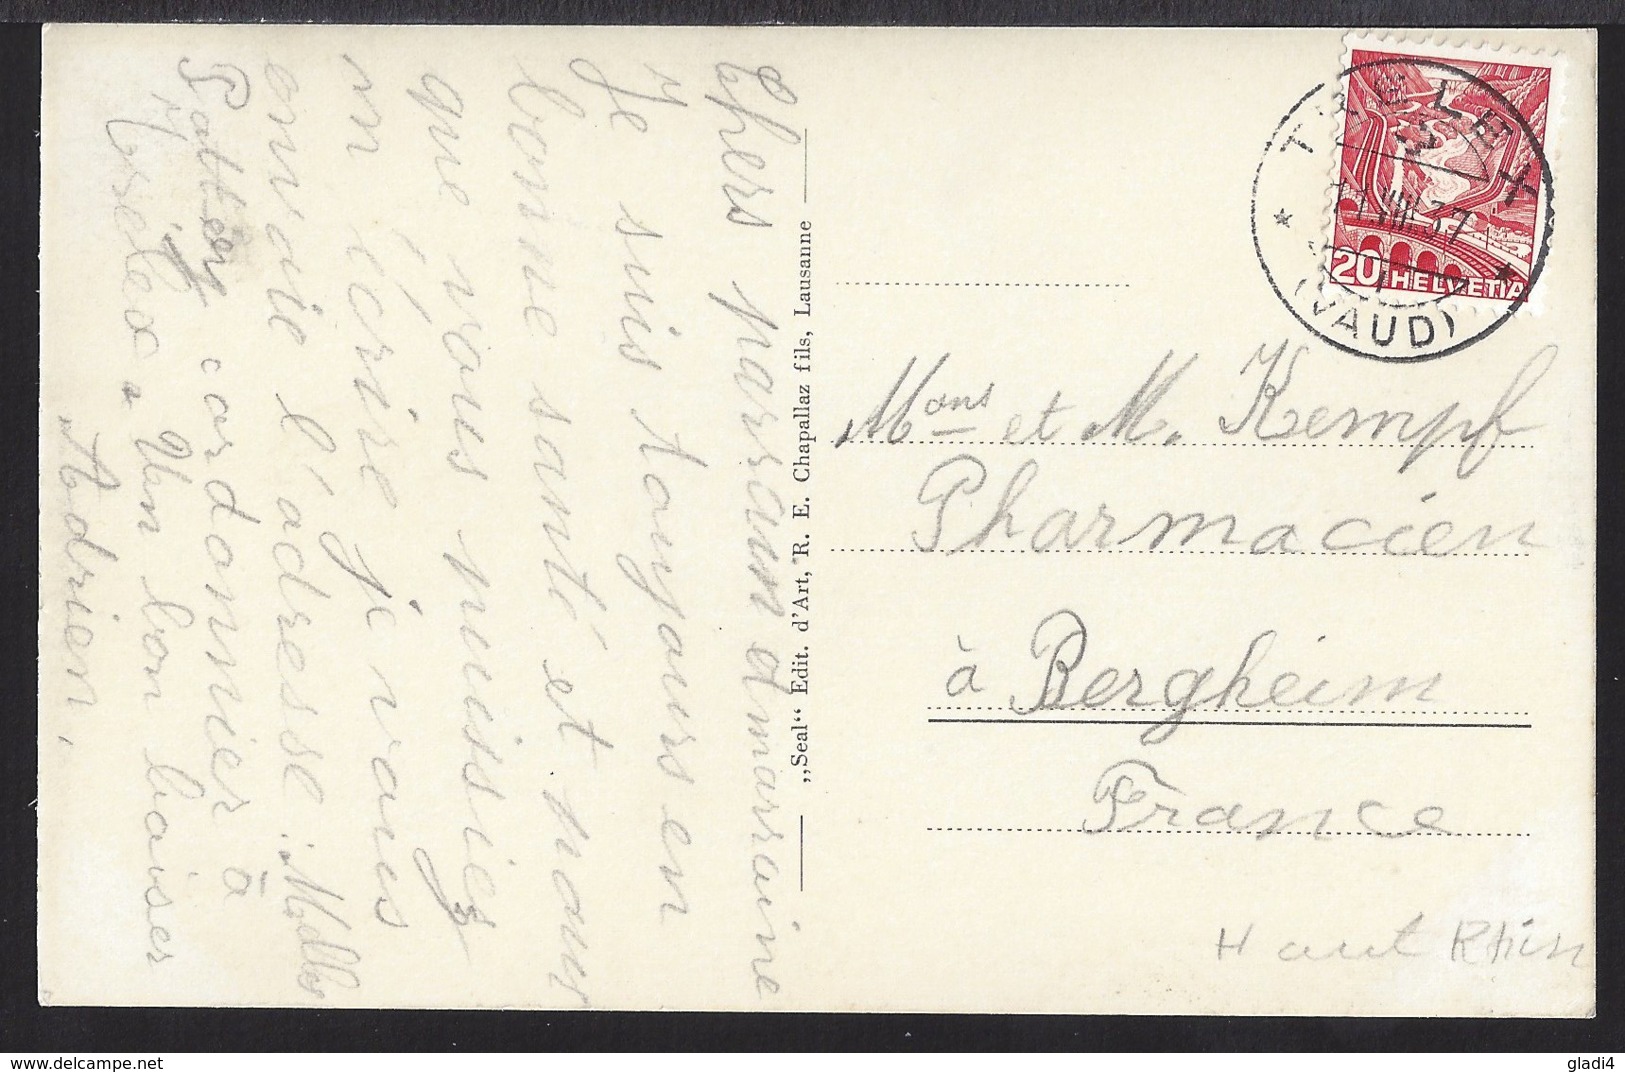 Chers parrain et marraine
Je suis toujours en
bonne santé et pour
que vous puissiez
m'écrire je vous
envoie l'adresse. Mdlle
cordonnier à
Trélex. Un bon baiser
Adrien.
„Seal“ Edit. d'Art, R. E. Chapallaz fils, Lausanne
TRÉLEX
VIII.37
(VAUD)
20 HELVETIA
Mons et M. Kempf
Pharmacien
à Bergheim
France
Haut Rhin
gladi4